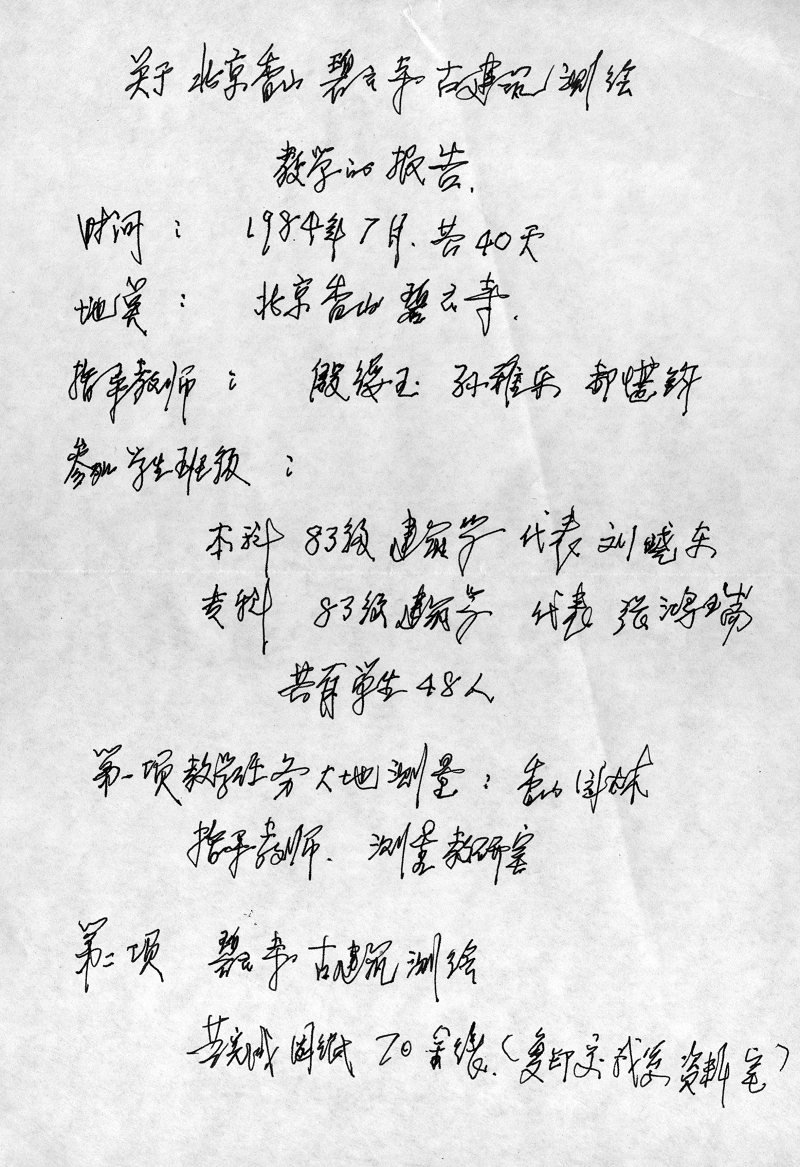 关于北京香山碧云寺古建筑测绘
教学的报告.
时间： 1984年7月.共40天
地点： 北京香山碧云寺.
指导教师： 殷绥玉 孙雅乐
参加学生班级：
本科 83级建筑学 代表 刘晓东
专科 83级建筑学 代表 张鸿瑞
共有学生48人
第一项教学任务大地测量：香山园林
指导教师. 测量教研室
第二项 碧云寺古建筑测绘
共完成图纸70余张.(复印交我系资料室)